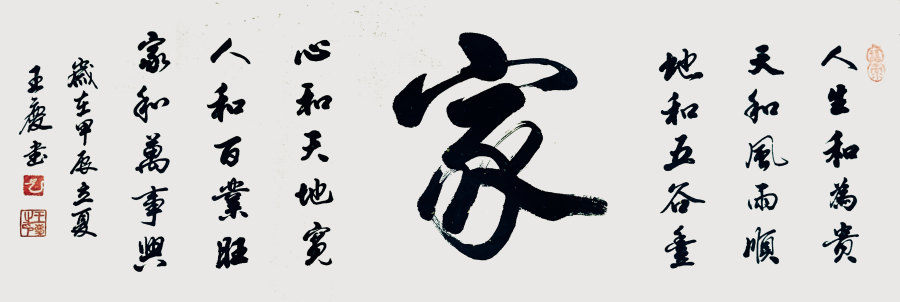 人生和為贵
天和風雨順
地和五谷豊
家
心和天地宽
人和百業旺
家和萬事興
歲在甲辰立夏
王慶书